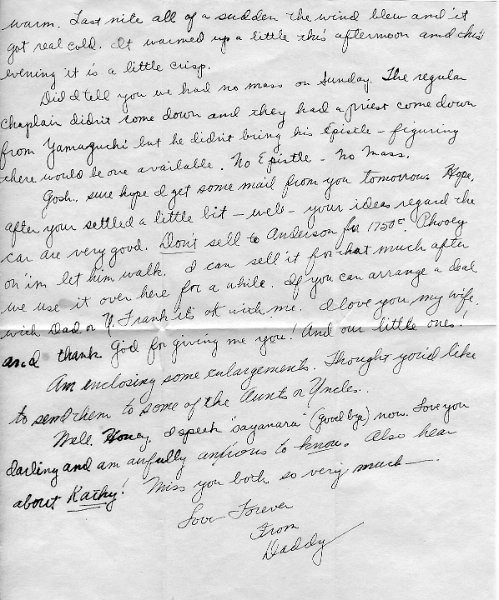 warm. Last nite all of a sudden the wind blew and it
got real cold. It warmed up a little this afternoon and this
evening it is a little crisp.
Did I tell you we had no mass on Sunday. The regular
Chaplain didn't come down and they had a priest come down
from Yamaguchi but he didn't bring his Epistle - figuring
there would be one available. No Epistle - No Mass.
Gosh, sure hope I get some mail from you tomorrow. Hope,
after your settled a little bit - well - your ideas regard the
car are very good. Don't sell to Anderson for 1750 Phooey
on 'im let him walk. I can sell it for that much after
we use it over here for a while. If you can arrange a deal
with Dad or U. Frank it's ok with me. I love you my wife.
and thank God for giving me you! And our little ones!
Am enclosing some enlargements. Thought you'd like
to send them to some of the Aunts or Uncles..
Well, Honey, I speak 'sayanara' (good bye) now. Love you
darling and am awfully anxious to know. Also hear
about Kathy! Miss you both so very much —
Love Forever
From
Daddy